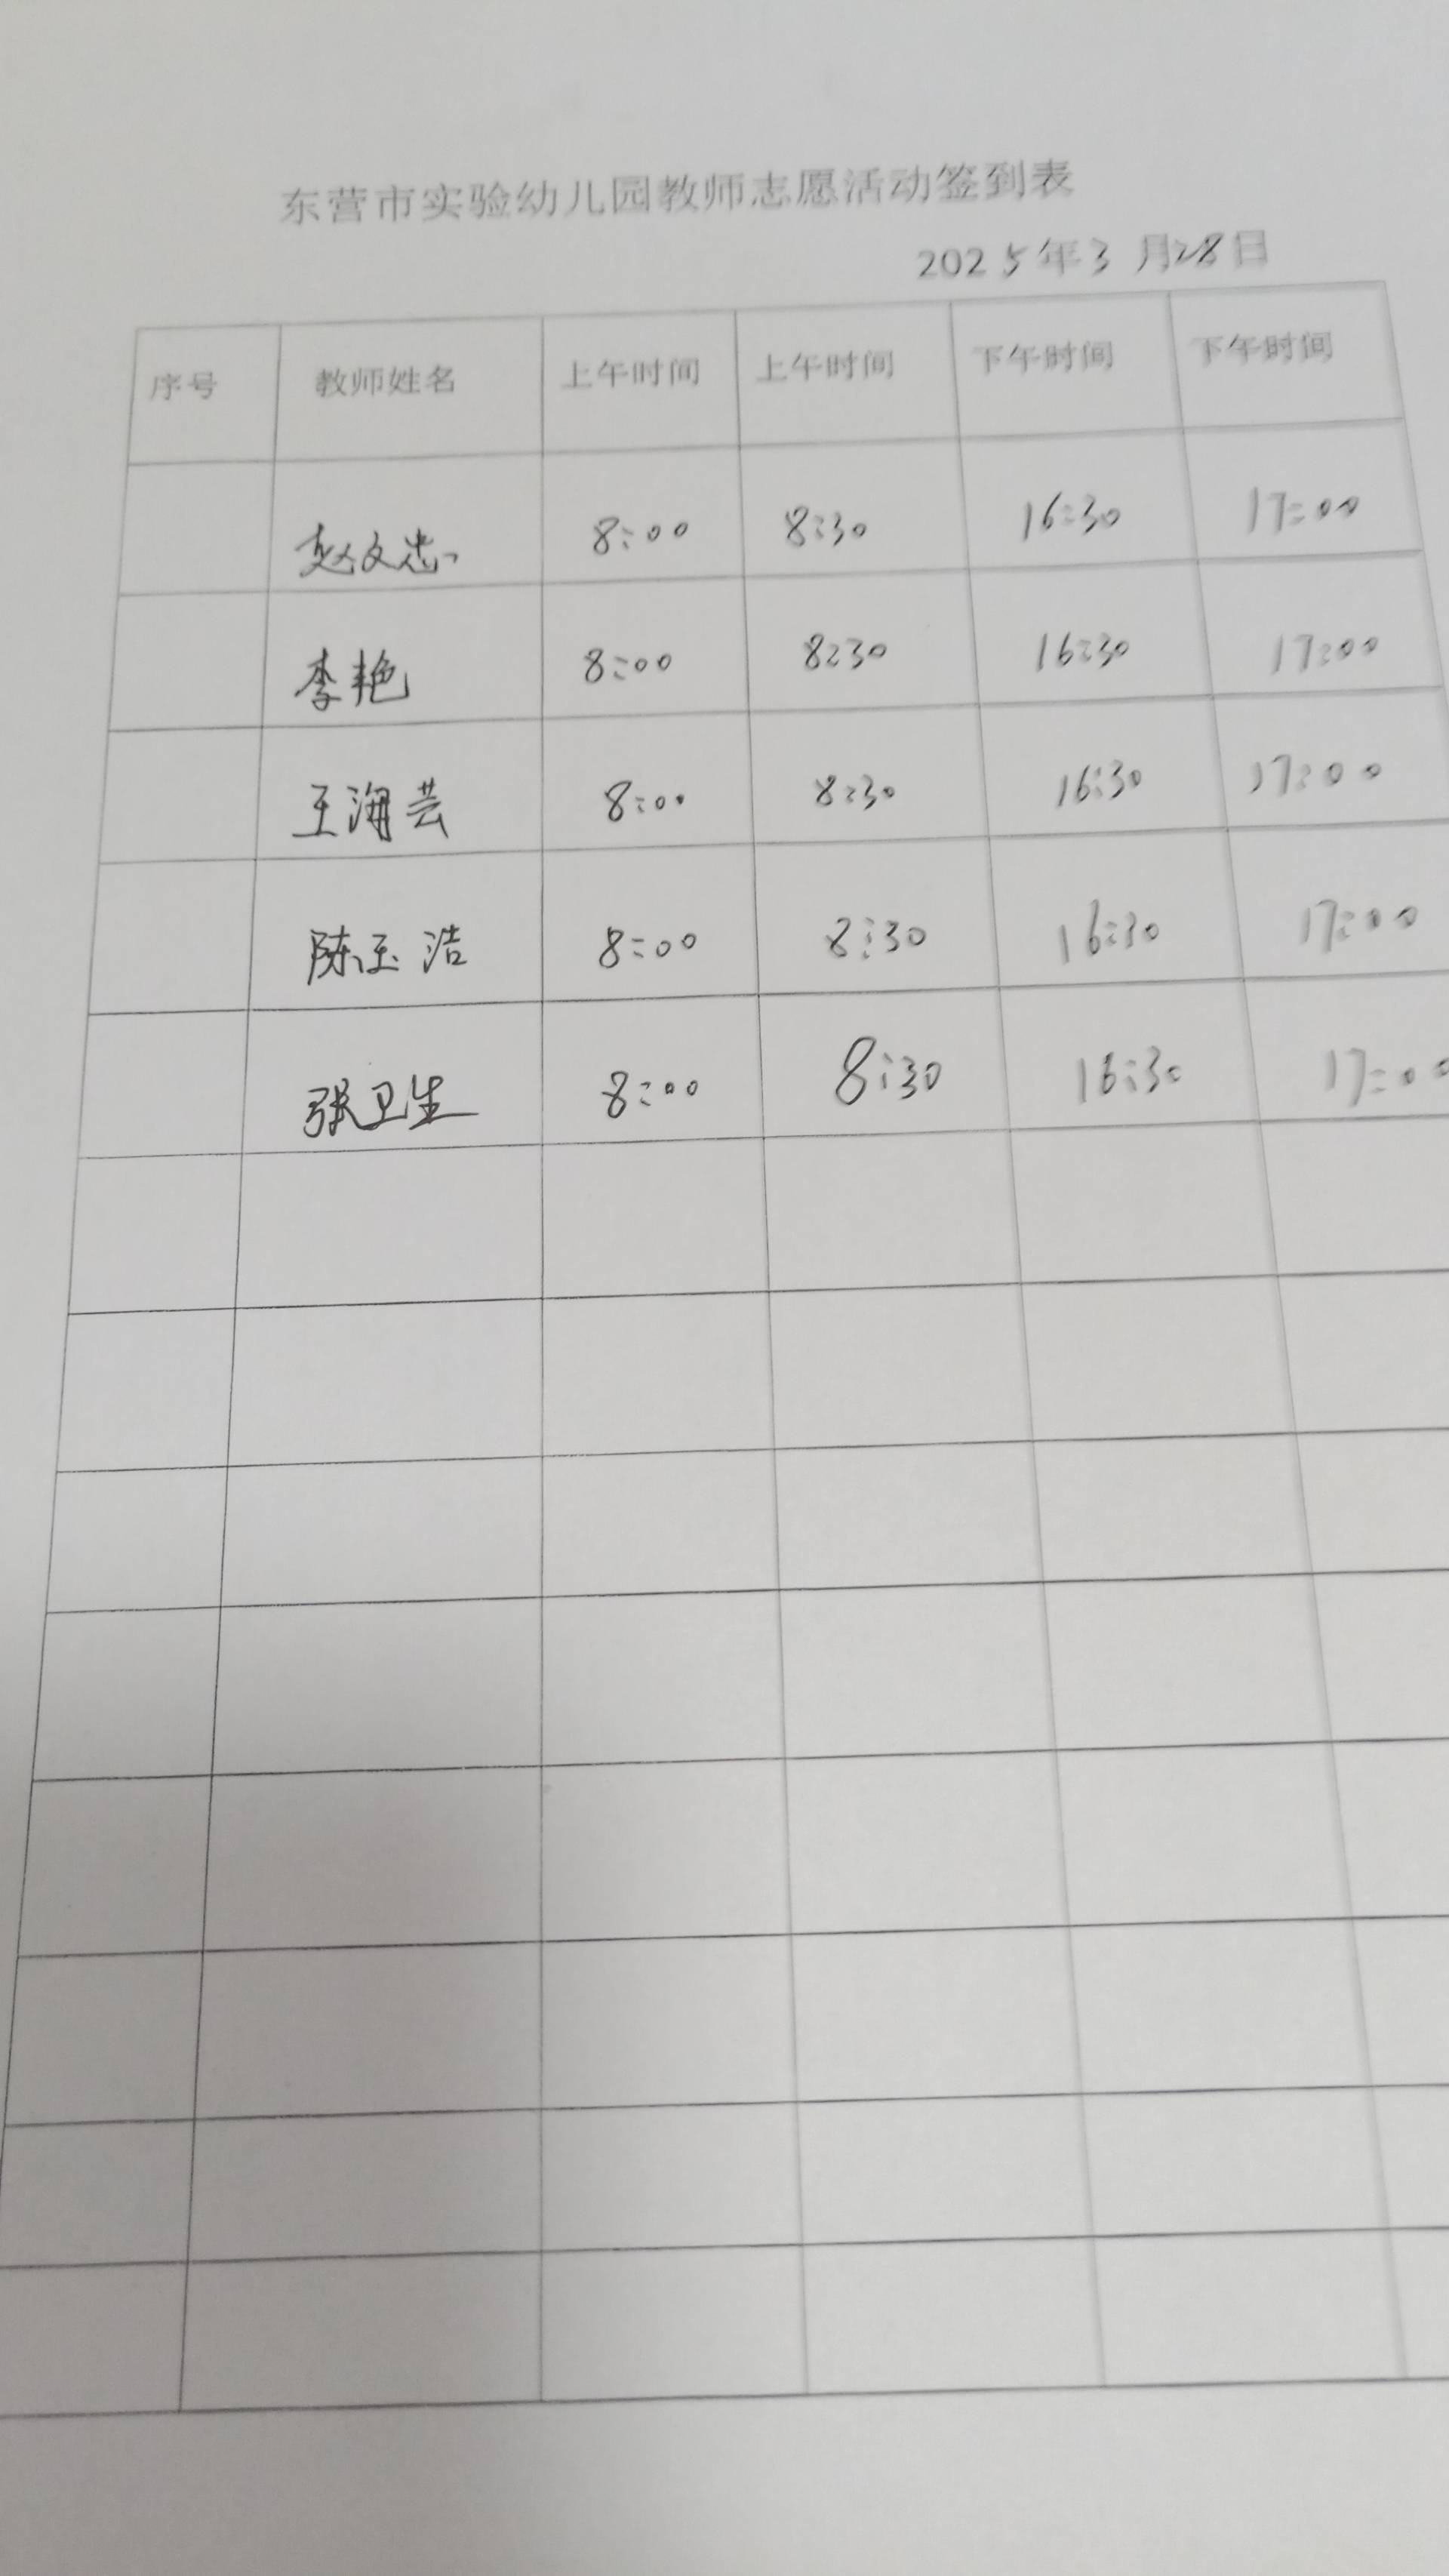 东营市实验幼儿园教师志愿活动签到表
2025年3月28日
序号 教师姓名 上午时间 上午时间 下午时间 下午时间
赵文忠 8:00 8:30 16:30 17:00
李艳 8:00 8:30 16:30 17:00
王海芸 8:00 8:30 16:30 17:00
陈玉浩 8:00 8:30 16:30 17:00
张卫生 8:00 8:30 16:30 17:00